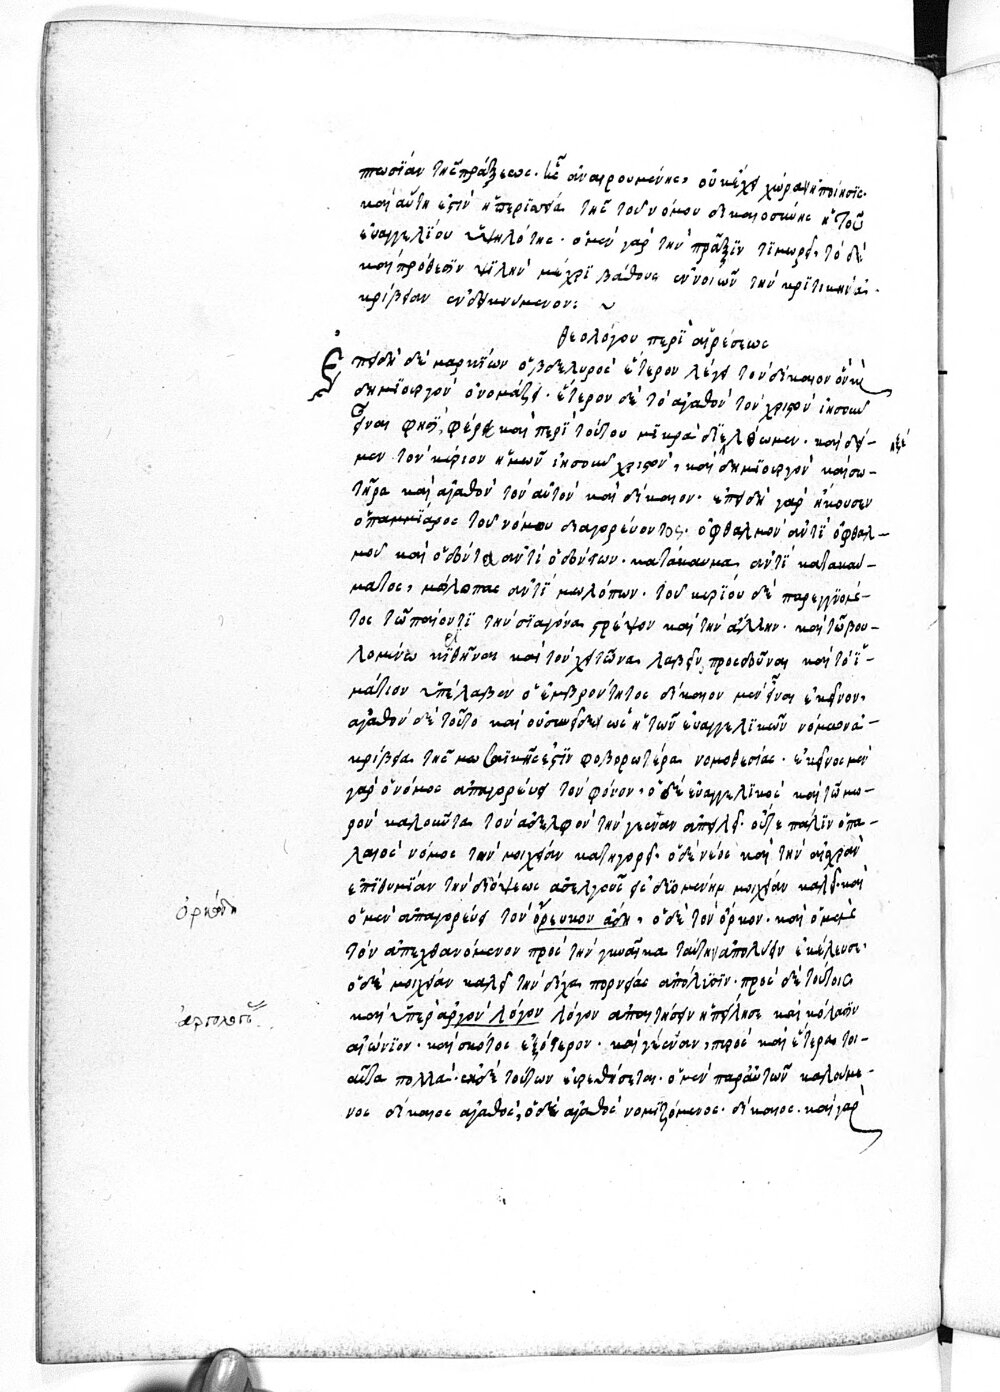 πτωσίαν τῆς πράξεως. ἧς ἀναιρουμένης, οὐκ ἔχει χώραν ἡ ποίησις.
καὶ αὕτη ἐστὶν ἡ περιωπὴ τῆς τοῦ νόμου δικαιοσύνης ἡ τοῦ
εὐαγγελίου ὑψηλότης. ὁ μὲν γὰρ τὴν πρᾶξιν τιμωρεῖ, τὸ δὲ
καὶ πρόθεσιν ψιλὴν μέχρι βάθους ἐννοιῶν τὴν κριτικὴν ἀ-
κρίβειαν ἐνδεικνύμενον:
θεολόγου περὶ αἱρέσεως
Ἐπειδὴ δὲ μαρκίων ὁ βδελυρὸς ἕτερον λέγει τὸν δίκαιον ὃν καὶ
δημιουργὸν ὀνομάζει. ἕτερον δὲ τὸ ἀγαθὸν τὸν χριστὸν ἰησοῦν
εἶναι φησί, φέρε καὶ περὶ τούτου μικρὰ διέλθωμεν. καὶ δεί-
ξω
μεν τὸν κύριον ἡμῶν ἰησοῦν χριστὸν, καὶ δημιουργὸν καὶ σω-
τῆρα καὶ ἀγαθὸν τὸν αὐτὸν καὶ δίκαιον. ἐπειδὴ γὰρ ἤκουσεν
ὁ παμμίαρος τοῦ νόμου διαγορεύοντος. ὀφθαλμὸν ἀντὶ ὀφθαλ-
μοῦ καὶ ὀδόντα ἀντὶ ὀδόντων. κατάκαυμα ἀντὶ κατακαύ-
ματος, μώλωπας ἀντὶ μωλώπων. τοῦ κυρίου δὲ παρεγγυομέ-
τος τῶ παίοντι τὴν σιαγόνα στρέψον καὶ τὴν ἄλλην. καὶ τῶ βου-
λομένω κριθῆναι καὶ τὸν χιτῶνα λαβεῖν, προσδοῦναι καὶ τὸ ἱ-
μάτιον ὑπέλαβεν ὁ ἐμβρόντητος δίκαιον μὲν εἶναι ἐκεῖνον,
ἀγαθὸν δὲ τοῦτο καὶ οὐ συνεῖδεν ὡς ἡ τῶν εὐαγγελικῶν νόμων ἀ-
κρίβεια τῆς μωσαϊκῆς ἐστὶν φοβερωτέρα νομοθεσίας. ἐκεῖνος μὲν
γὰρ ὁ νόμος ἀπαγορεύει τὸν φόνον, ὁ δὲ εὐαγγελικὸς καὶ τῶ μω-
ρὸν καλοῦντα τὸν ἀδελφὸν τὴν γέενναν ἀπειλεῖ. οὗτε πάλιν ὁ πα-
λαιὸς νόμος τὴν μοιχείαν κατηγορεῖ. ὁ δὲ νέος καὶ τὴν αἰσχρὰν
ἐπιθυμίαν τὴν δι' ὄψεως ἀσελγοῦς γινομένην μοιχείαν καλεῖ. καὶ
ὁ μὲν ἀπαγορεύει τὸν ὅρευκον ἄδη, ὁ δὲ τὸν ὅρκον. καὶ ὁ μὲν
τὸν ἀπεχθανόμενον πρὸς τὴν γυναῖκα ταύτην ἀπολύειν ἐκέλευσε.
ὁ δὲ μοιχείαν καλεῖ τὴν δίχα πορνείας ἀπόλυσιν. πρὸς δὲ τούτοις
καὶ ὑπὲρ ἀργὸν λόγον λόγον ἀπαιτήσειν ἠπείλησε καὶ κόλασιν
αἰώνιον. καὶ σκότος ἐξώτερον. καὶ γέενναν πυρὸς καὶ ἕτερα τοι-
αῦτα πολλά. ἐκ δὲ τούτων εὑρεθήσεται. ὁ μὲν παρ' αὐτῶν καλούμε-
νος δίκαιος ἀγαθός, ὁ δὲ ἀγαθὸς νομιζόμενος. δίκαιος. καὶ γὰρ